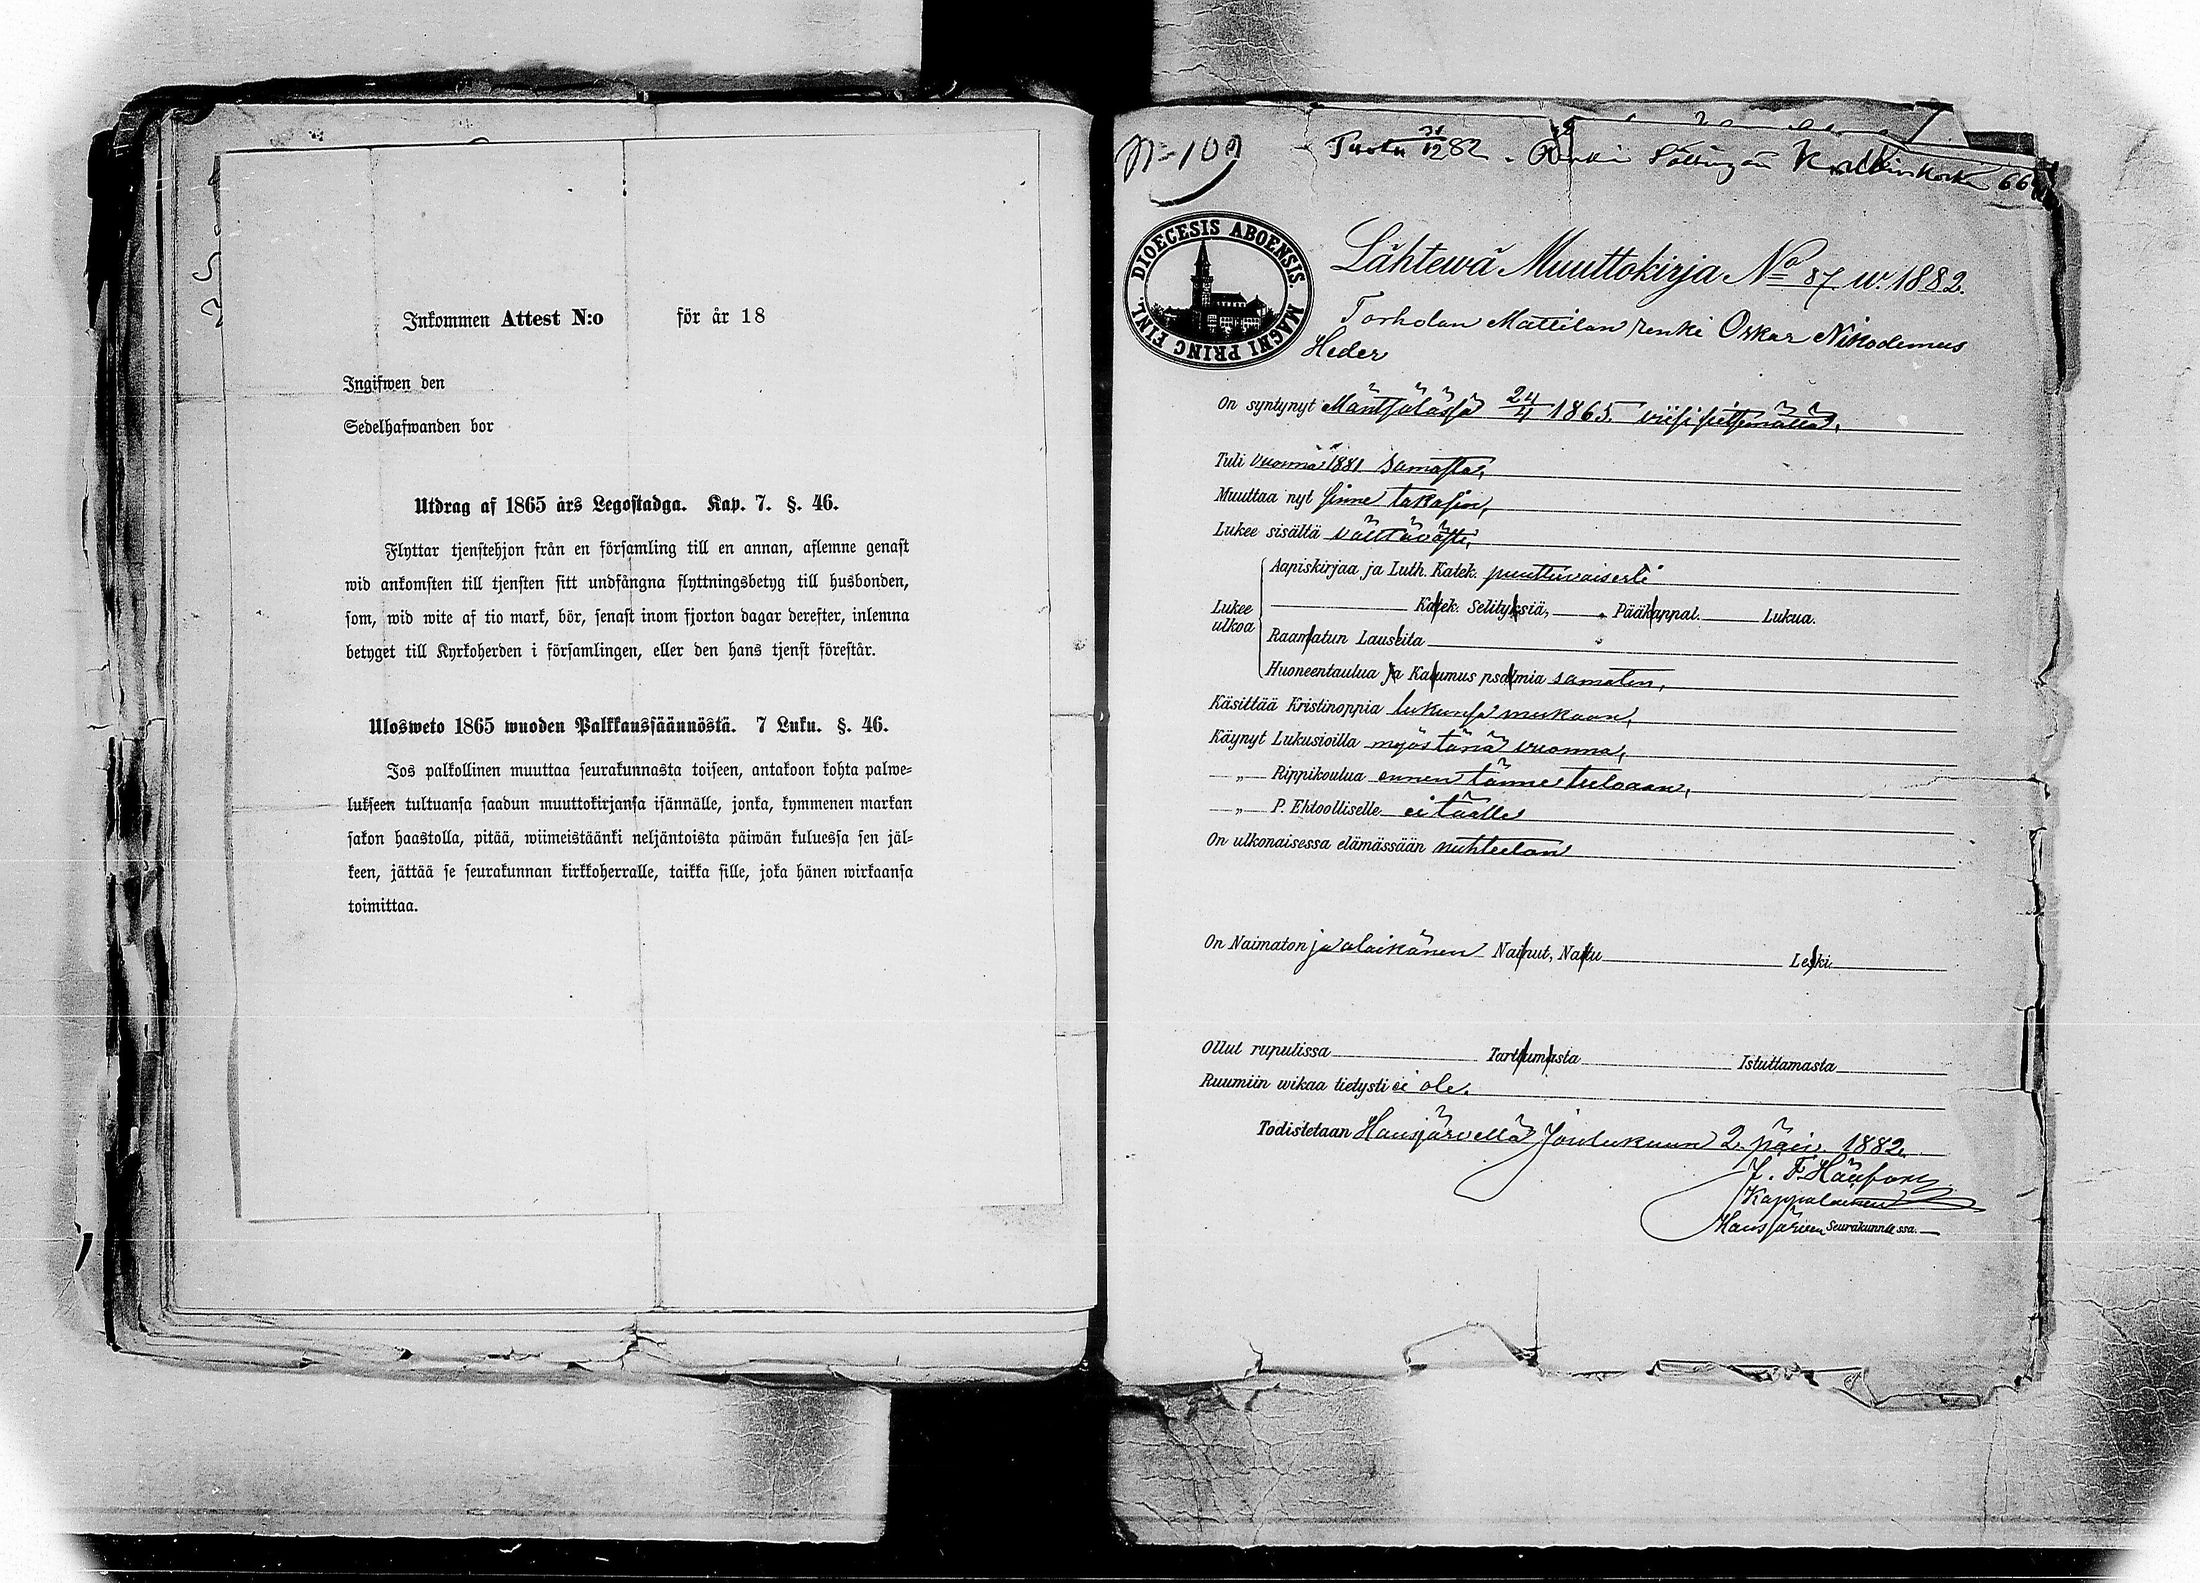 Inkommen Attest N:o för år 18
Ingifwen den
Sedelhafwanden bor
Utdrag af 1865 års Legostadga. Kap. 7. §. 46.
Flyttar tjenstehjon från en församling till en annan, aflemne genast
wid ankomsten till tjensten sitt undfångna flyttningsbetyg till husbonden,
som, wid wite af tio mark, bör, senast inom fjorton dagar derefter, inlemna
betyget till Kyrkoherden i församlingen, eller den hans tjenst förestår.
Ulosweto 1865 wuoden Palkkaussäännöstä. 7 Luku. §. 46.
Jos palkollinen muuttaa seurakunnasta toiseen, antakoon kohta palwe-
lukseen tultuansa saadun muuttokirjansa isännälle, jonka, kymmenen markan
sakon haastolla, pitää, wiimeistäänki neljäntoista päiwän kuluessa sen jäl-
keen, jättää se seurakunnan kirkkoherralle, taikka sille, joka hänen wirkaansa
toimittaa.
N=109 Tuotu 31/12 82. Renki 66
DIOECESIS ABOENSIS. MAGNI PRINC FINL.
Lähtewä Muuttokirja No 87 w. 1882.
Torholan Mattilan renki Oskar Nikodemus
Heder
On syntynyt Mäntsälässä 24/4 1865 viisi seitsemättä,
Tuli vuonna 1881 samasta,
Muuttaa nyt sinne takasin,
Lukee sisältä välttävästi,
Aapiskirjaa ja Luth. Katek. puuttuvaisesti
Lukee ulkoa
Katek. Selityksiä, Pääkappal. Lukua.
Raamatun Lauseita
Huoneentaulua ja Katumus psalmia samaten,
Käsittää Kristinoppia lukunsa mukaan,
Käynyt Lukusioilla myös tänä vuonna,
„ Rippikoulua ennen tänne tuloaan,
„ P. Ehtoolliselle ei täällä
On ulkonaisessa elämässään nuhteeton
On Naimaton ja alaikänen Nainut, Naitu Leski
Ollut rupulissa Tarttumasta Istuttamasta
Ruumiin wikaa tietysti ei ole.
Todistetaan Hausjärvellä Joulukuun 2. päiv. 1882.
Kappalainen
Hausjärven Seurakunnassa.